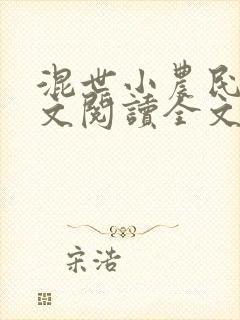 混世小農民
文閱讀全文
宋浩